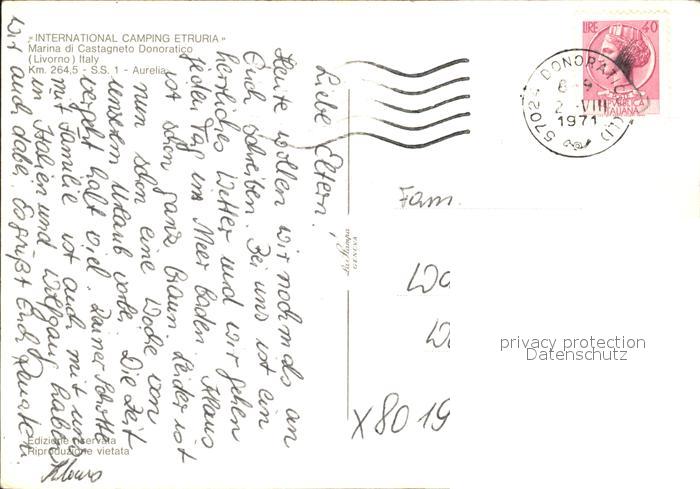 «INTERNATIONAL CAMPING ETRURIA»
Marina di Castagneto Donoratico
(Livorno) Italy
Km. 264,5 - S.S. 1 - Aurelia
Liebe Eltern!
Heute wollen wir nochmals an
Euch schreiben. Bei uns ist ein
herrliches Wetter und wir gehen
jeden Tag ins Meer baden. Klaus
ist schon ganz braun. Leider ist
nun schon eine Woche von
unserem Urlaub vorbei. Die Zeit
vergeht halt viel. Rainer
mit Familie ist auch mit uns
in Italien und Wolfgang haben
wir auch dabei. Es grüßt Euch
Klaus
Edizione riservata
Riproduzione vietata
La Stampa
GENOVA
LIRE 40
REPUBBLICA
ITALIANA
57024 DONORATICO (LI)
8-9
2 .VIII
1971
Fam.
X 80 19
privacy protection
Datenschutz